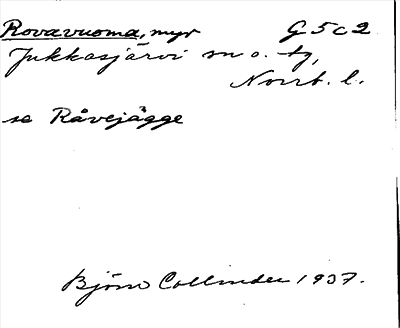 Rovavuoma, myr G 5 c 2
Jukkasjärvi sn o. tg,
Norrb. l.
se Råvejägge
Björn Collinder 1937.